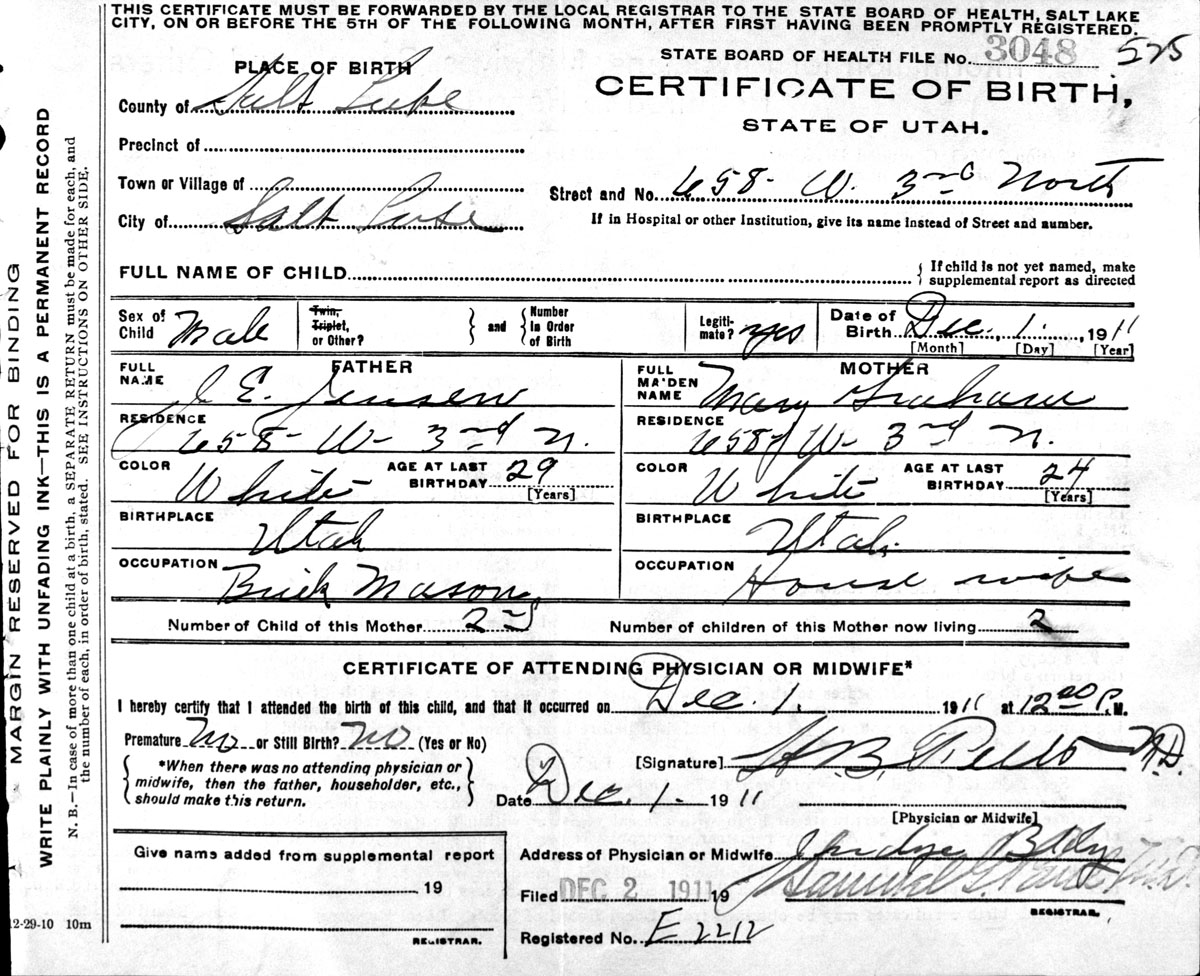 THIS CERTIFICATE MUST BE FORWARDED BY THE LOCAL REGISTRAR TO THE STATE BOARD OF HEALTH, SALT LAKE
CITY, ON OR BEFORE THE 5TH OF THE FOLLOWING MONTH, AFTER FIRST HAVING BEEN PROMPTLY REGISTERED.
STATE BOARD OF HEALTH FILE No. 3048 575
PLACE OF BIRTH
CERTIFICATE OF BIRTH,
STATE OF UTAH.
County of Salt Lake
Precinct of
Town or Village of
Street and No. 658- W. 3rd North
City of Salt Lake
If in Hospital or other Institution, give its name instead of Street and number.
FULL NAME OF CHILD
If child is not yet named, make
supplemental report as directed
Sex of Child Male
Twin, Triplet, or Other?
and
Number in Order of Birth
Legiti-mate? yes
Date of Birth Dec. 1. , 1911
[Month] [Day] [Year]
FATHER
FULL NAME J E. Jensen
RESIDENCE 658- W- 3rd N.
COLOR White AGE AT LAST BIRTHDAY 29 [Years]
BIRTHPLACE Utah
OCCUPATION Brick Mason
MOTHER
FULL MAIDEN NAME Mary Graham
RESIDENCE 658 W- 3rd N.
COLOR White AGE AT LAST BIRTHDAY 24 [Years]
BIRTHPLACE Utah
OCCUPATION House wife
Number of Child of this Mother 2nd Number of children of this Mother now living 2
CERTIFICATE OF ATTENDING PHYSICIAN OR MIDWIFE*
I hereby certify that I attended the birth of this child, and that it occurred on Dec. 1. 1911 at 12 20 P. M.
Premature No or Still Birth? No (Yes or No)
*When there was no attending physician or
midwife, then the father, householder, etc.,
should make this return.
[Signature] H. B. M.D.
Date Dec. 1. 1911
[Physician or Midwife]
Give name added from supplemental report
19
REGISTRAR.
Address of Physician or Midwife Judge Bldg
Filed DEC 2 1911 19 Samuel G. Paul M.D.
REGISTRAR.
Registered No. E 2212
12-29-10 10m
MARGIN RESERVED FOR BINDING
WRITE PLAINLY WITH UNFADING INK—THIS IS A PERMANENT RECORD
N. B.—In case of more than one child at a birth, a SEPARATE RETURN must be made for each, and
the number of each, in order of birth, stated. SEE INSTRUCTIONS ON OTHER SIDE.